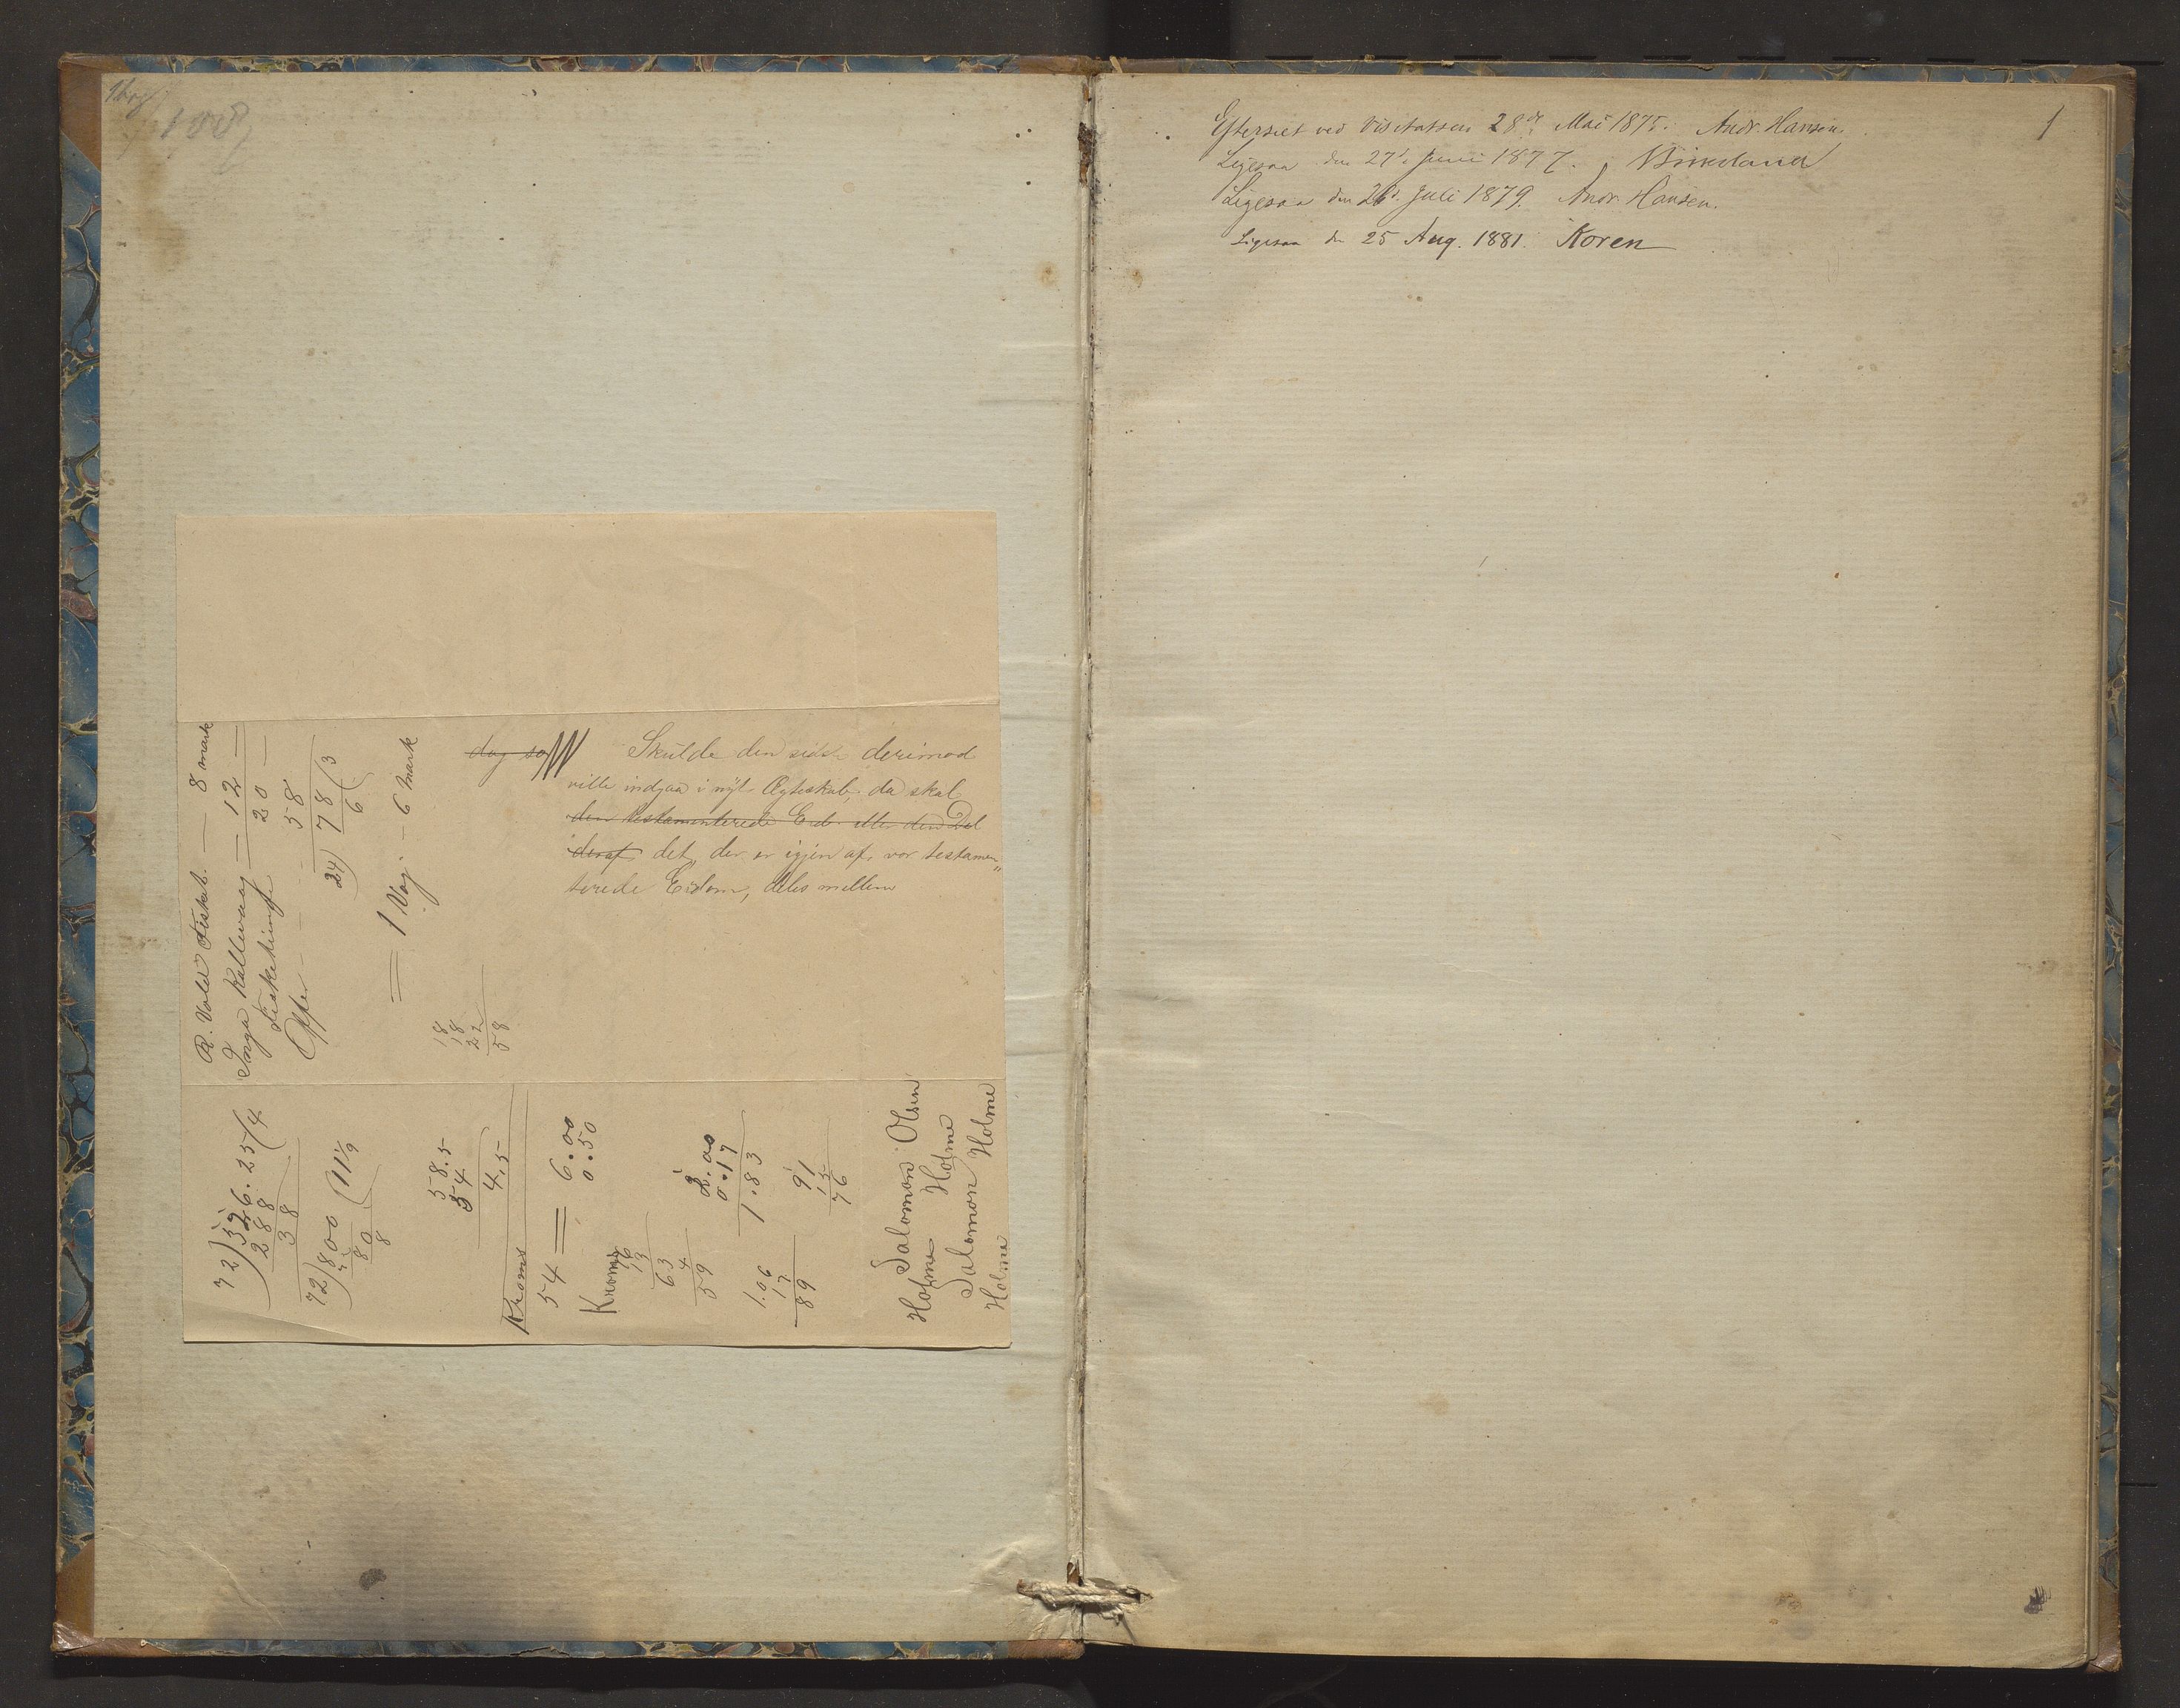 100
Skulde den sidste derimod
ville indgaa i nyt Ægteskab, da skal
den testamenterede Eiend. eller den Del
deraf, det, der er igjen af, vor testamen„
terede Eidom, deles mellem
dog so
R. Vold Fiskat. — 8 mark
Inga Kallevaag — 12 —
Fisketiende 20 —
Offer 58
24) 78 (3
6
= 1 Vog - 6 Mark
18
18
22
58
72) 326.25 (4
288
38
72) 800 (11 1/9
80
8
58.5
54
4.5
Kroms
54 = 6.00
0.50
Kroms
16
13
63
4
59
2.00
0.17
1.83
1.06
17
89
91
15
76
Salomon Olsen
Holme Holme
Salomon Holme
Holme
1
Efterseet ved Visitatsen 28de Mai 1875. Andr. Hansen.
Ligesaa den 27de Juni 1877. Birkeland
Ligesaa den 26d. Juli 1879. Andr. Hansen.
Ligesaa den 25 Aug. 1881. Koren